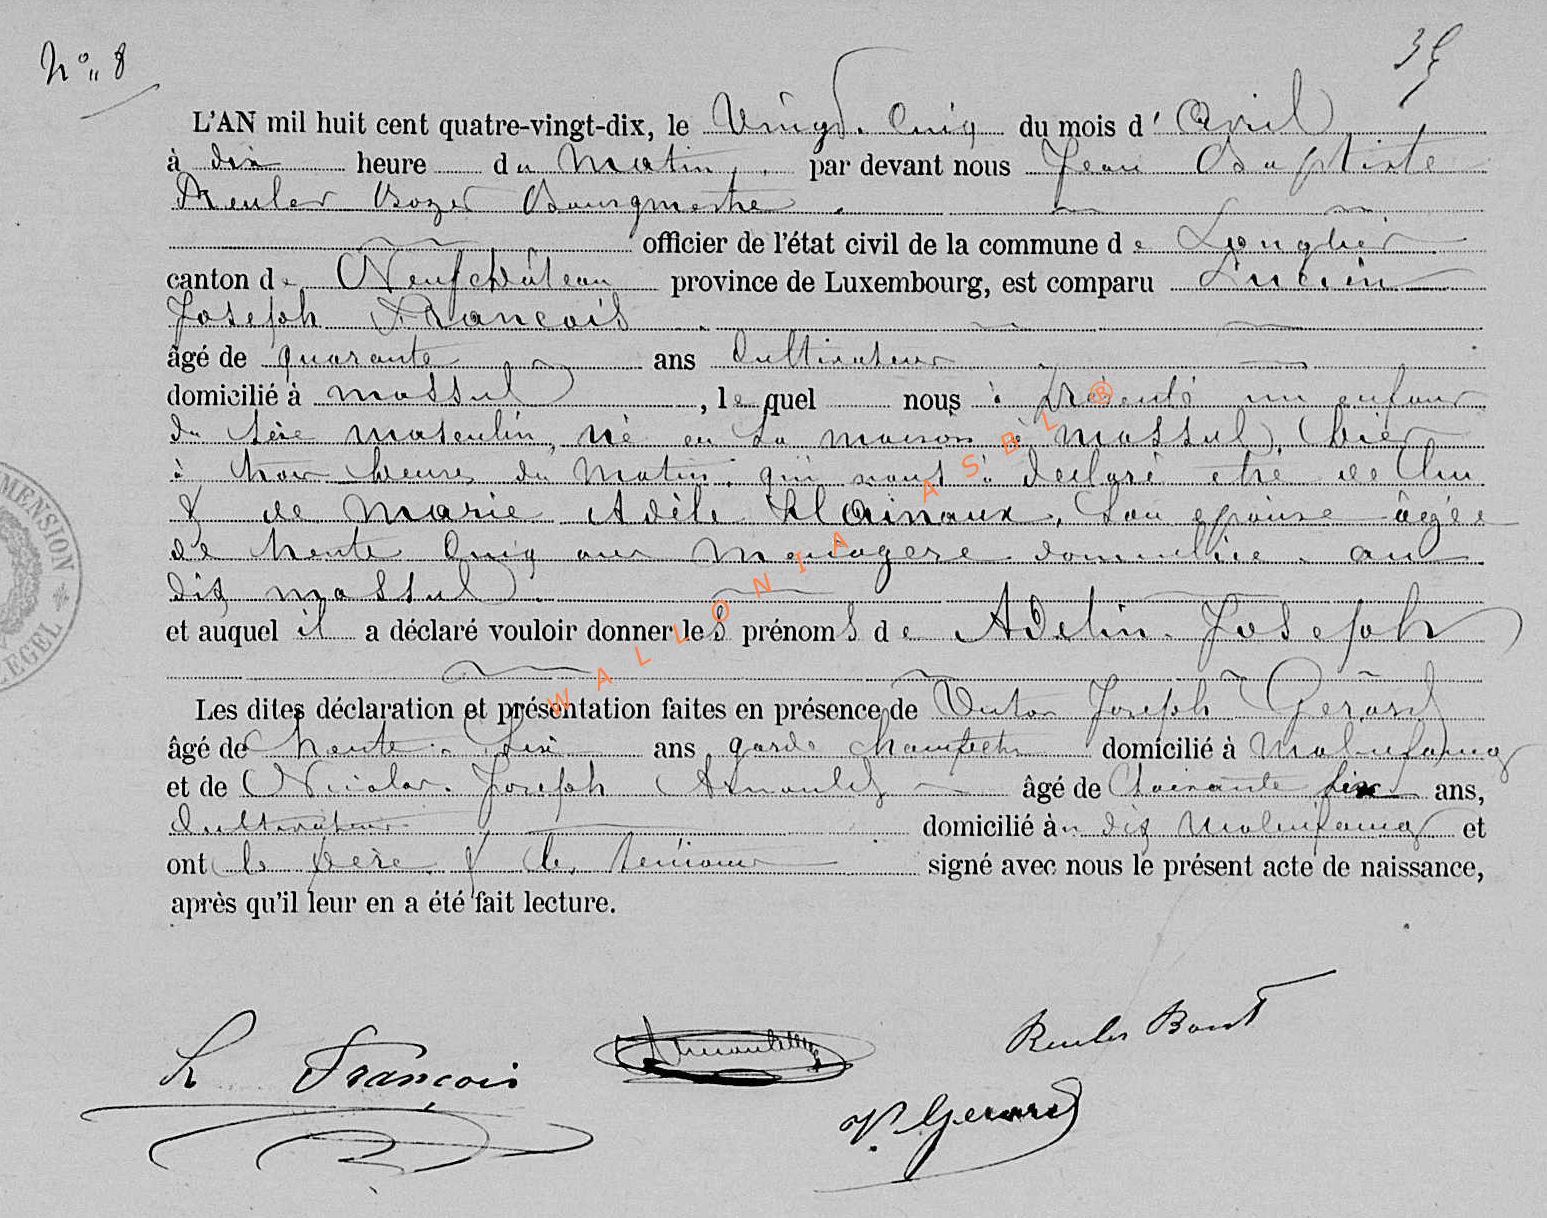 N° 8
35
L'AN mil huit cent quatre-vingt-dix, le Vingt Cinq du mois d' Avril
à dix heure du Matin, par devant nous Jean Baptiste
Reuler Bozet Bourgmestre
officier de l'état civil de la commune de Longlier
canton de Neufchâteau province de Luxembourg, est comparu Lucien
Joseph François
âgé de quarante ans Cultivateur
domicilié à Massul, lequel nous à présenté un enfant
du sexe masculin, né en sa maison à Massul, hier
à heures du Matin. qui nous à declaré etre de lui
& de Marie Adèle Hainaux, son epouse âgée
de trente cinq ans Menagere domiciliée au
dit Massul.
et auquel il a déclaré vouloir donner les prénoms de Adelin Joseph
Les dites déclaration et présentation faites en présence de Victor Joseph Gerard
âgé de trente six ans garde champetre domicilié à Molinfaing
et de Nicolas Joseph Arnould âgé de soixante six ans,
Cultivateur domicilié à dit Molinfaing et
ont le père & les temoins signé avec nous le présent acte de naissance,
après qu'il leur en a été fait lecture.
MENSION
WALLONIA ASBL ®
L François
Reuler Bozet
V. Gerard